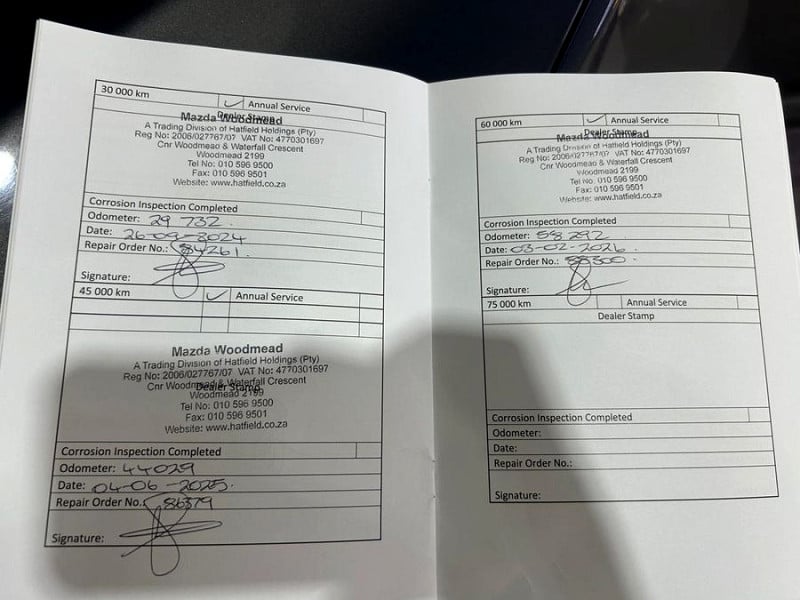 30 000 km Annual Service
Dealer Stamp
Mazda Woodmead
A Trading Division of Hatfield Holdings (Pty)
Reg No: 2006/027767/07 VAT No: 4770301697
Cnr Woodmead & Waterfall Crescent
Woodmead 2199
Tel No: 010 596 9500
Fax: 010 596 9501
Website: www.hatfield.co.za
Corrosion Inspection Completed
Odometer: 29 732.
Date: 26-09-2024
Repair Order No.: 84261.
Signature:
45 000 km Annual Service
Mazda Woodmead
A Trading Division of Hatfield Holdings (Pty)
Reg No: 2006/027767/07 VAT No: 4770301697
Cnr Woodmead & Waterfall Crescent
Dealer Stamp
Woodmead 2199
Tel No: 010 596 9500
Fax: 010 596 9501
Website: www.hatfield.co.za
Corrosion Inspection Completed
Odometer: 44029
Date: 04-06-2025.
Repair Order No.: 86379
Signature:
60 000 km Annual Service
Dealer Stamp
Mazda Woodmead
A Trading Division of Hatfield Holdings (Pty)
Reg No: 2006/027767/07 VAT No: 4770301697
Cnr Woodmead & Waterfall Crescent
Woodmead 2199
Tel No: 010 596 9500
Fax: 010 596 9501
Website: www.hatfield.co.za
Corrosion Inspection Completed
Odometer: 58 292
Date: 03-02-2026.
Repair Order No.: 88300.
Signature:
75 000 km Annual Service
Dealer Stamp
Corrosion Inspection Completed
Odometer:
Date:
Repair Order No.:
Signature: